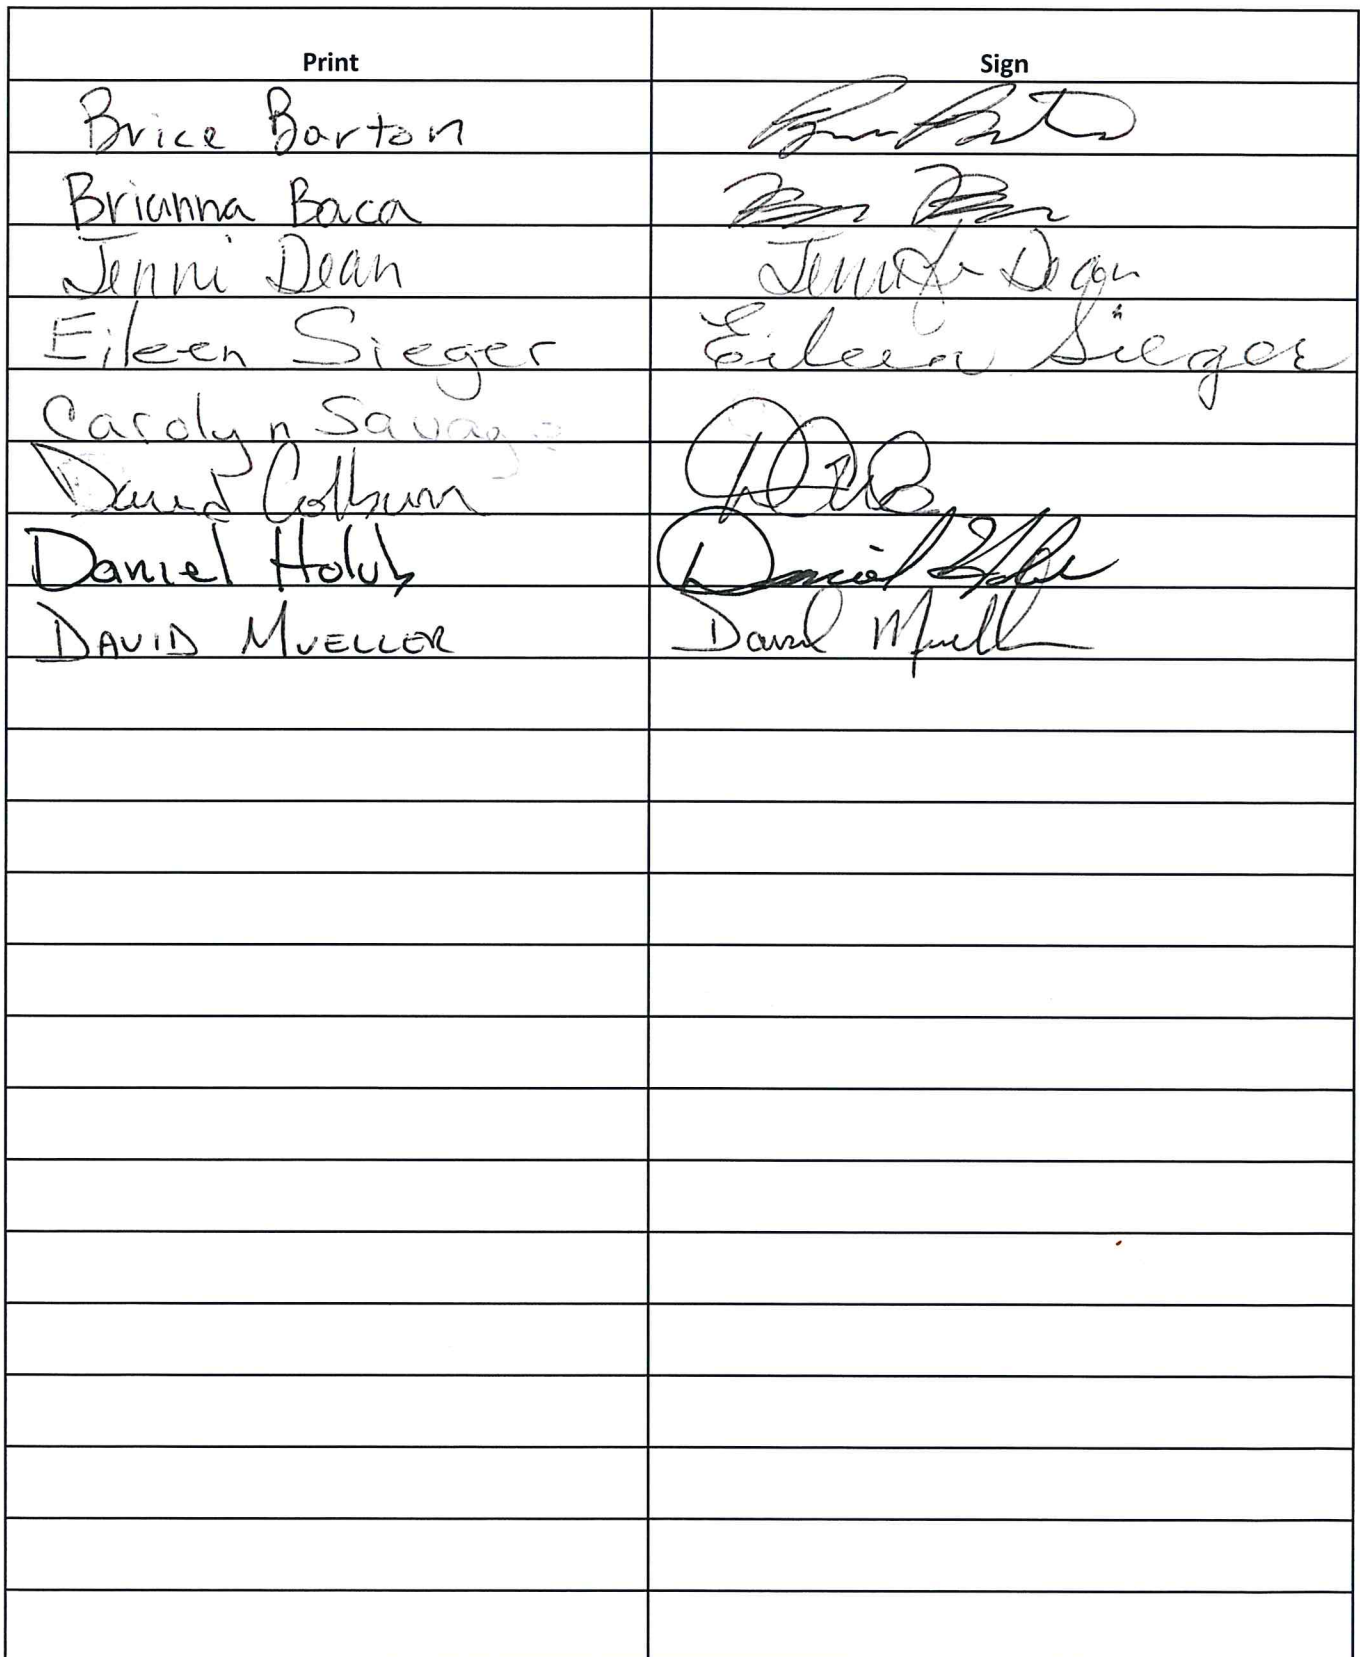 Print Sign
Brice Barton
Brianna Baca
Jenni Dean Jennifer Dean
Eileen Sieger Eileen Sieger
Carolyn Savage
David Colburn
Daniel Holub Daniel Holub
DAVID MUELLER David Mueller